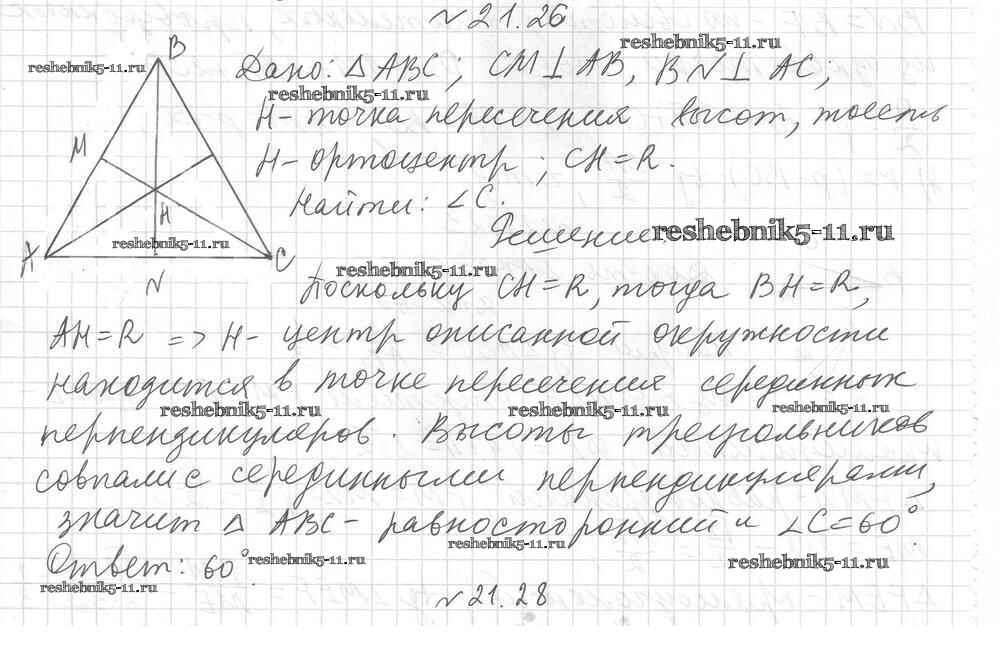 №21.26
reshebnik5-11.ru
B
reshebnik5-11.ru
Дано: △ABC; CM⊥AB, BN⊥AC;
reshebnik5-11.ru
H- точка пересечения высот, тоесть
M
H- ортоцентр; CH=R.
Найти: ∠C.
H
Решение:
reshebnik5-11.ru
reshebnik5-11.ru
A
C
reshebnik5-11.ru
N
Поскольку CH=R, тогда BH=R,
AH=R => H- центр описанной окружности
находится в точке пересечения серединных
reshebnik5-11.ru reshebnik5-11.ru reshebnik5-11.ru
перпендикуляров. Высоты треугольников
совпали с серединными перпендикулярами,
значит △ ABC- равносторонний и ∠C=60°.
reshebnik5-11.ru
Ответ: 60°.
reshebnik5-11.ru
reshebnik5-11.ru
reshebnik5-11.ru
№21.28